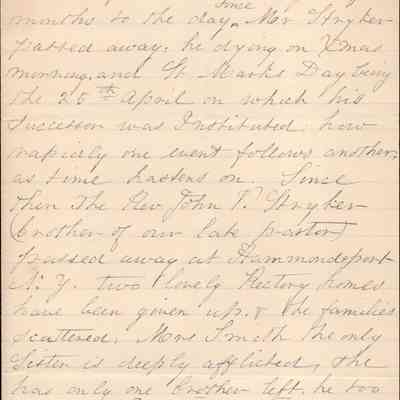 since
months to the day, Mr Stryker
passed away. he dying on Xmas
morning, and St Marks Day being
the 25th April on which his
Successor was Instituted how
rapidly one event follows another,
as time hastens on. Since
then The Rev John P. Stryker
(brother of our late pastor)
passed away at Hammondsport
N. Y. two lovely Rectory homes
have been given up, & the families
scattered. Mrs Smith the only
Sister is deeply afflicted, She
has only one brother left. he too